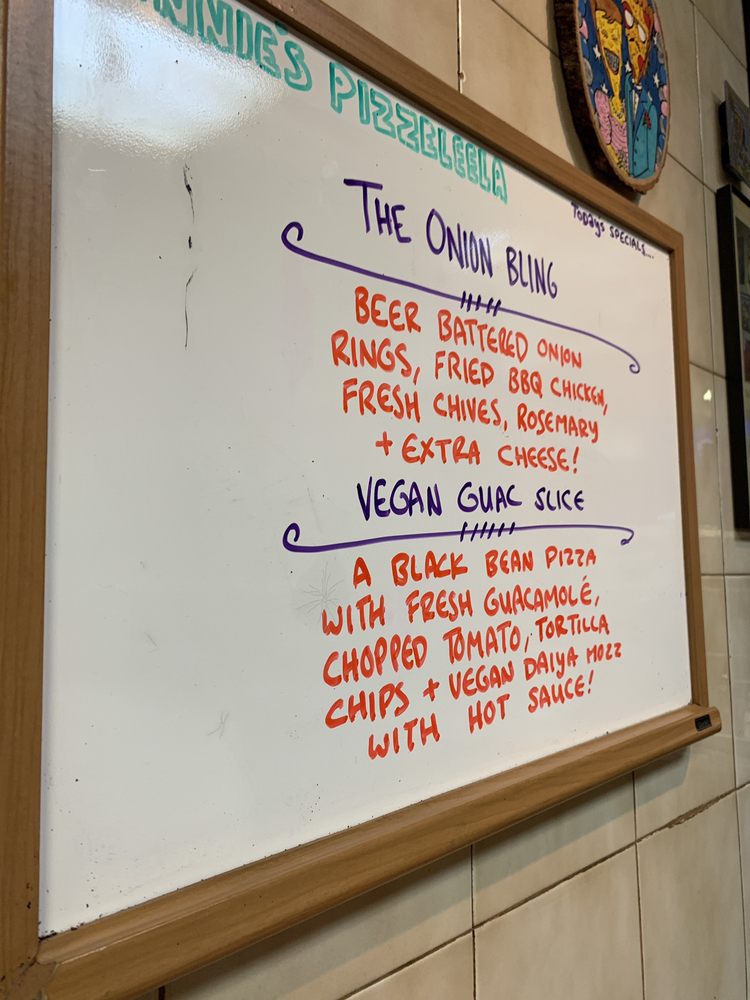 PIZZELEELA
TODAYS SPECIALS....
THE ONION BLING
BEER BATTERED ONION
RINGS, FRIED BBQ CHICKEN,
FRESH CHIVES, ROSEMARY
+ EXTRA CHEESE!
VEGAN GUAC SLICE
A BLACK BEAN PIZZA
WITH FRESH GUACAMOLÉ,
CHOPPED TOMATO, TORTILLA
CHIPS + VEGAN DAIYA MOZZ
WITH HOT SAUCE!